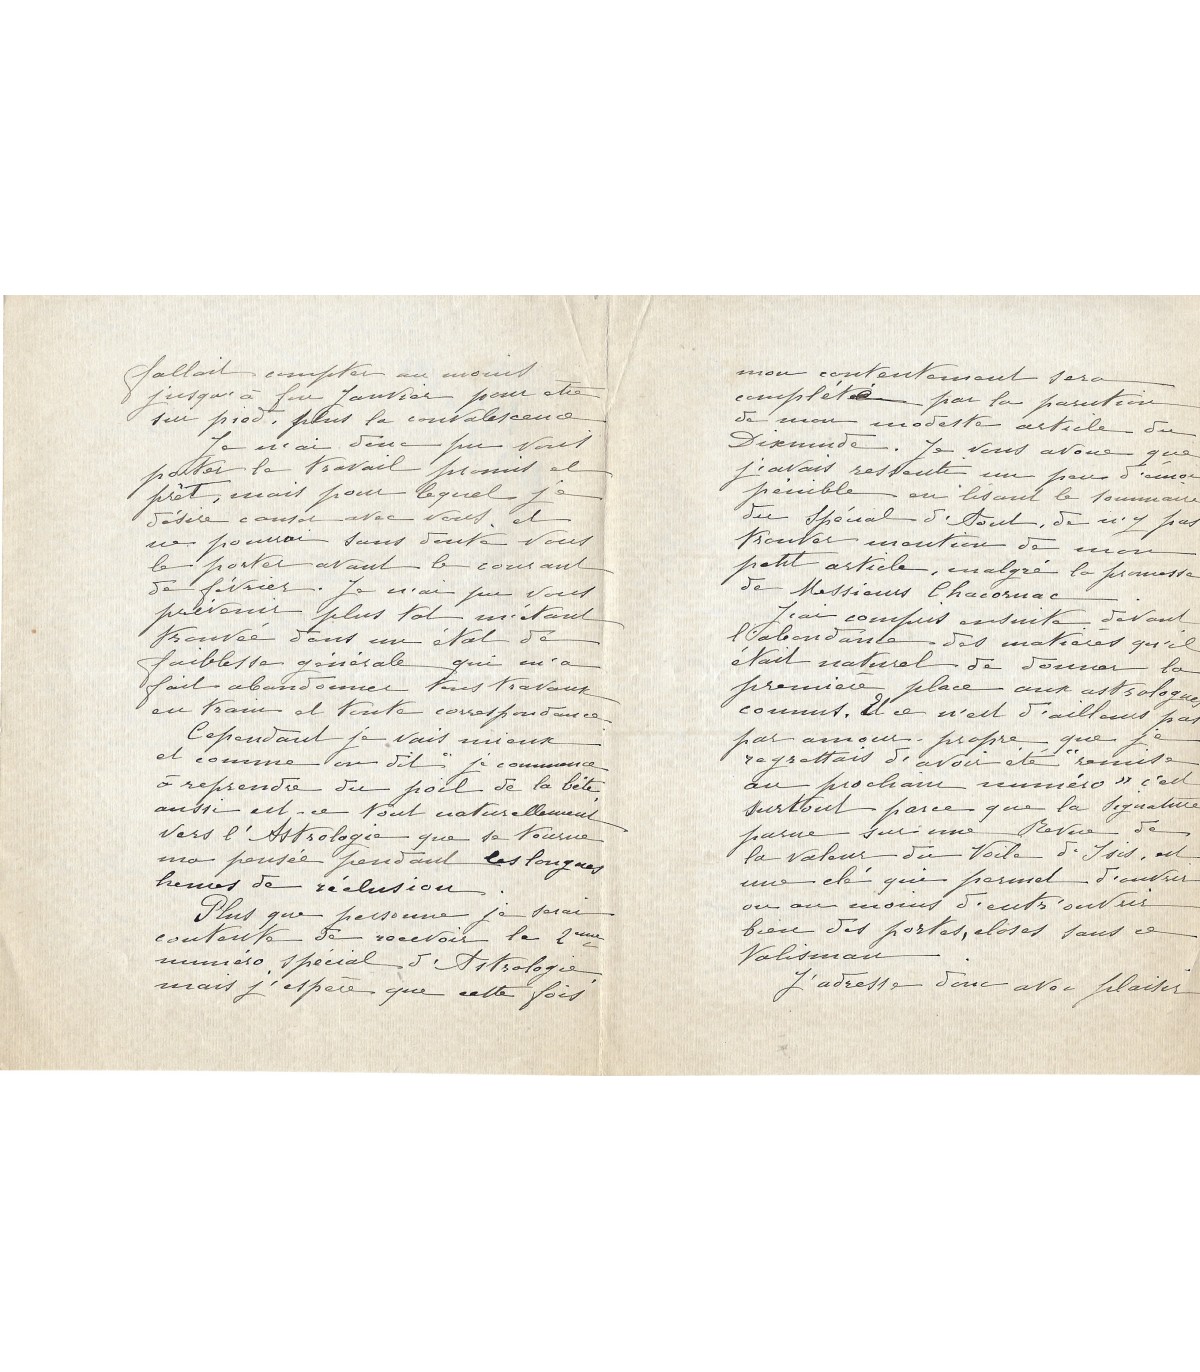 fallait compter au moins
jusqu'à fin Janvier pour être
sur pied, plus la convalescence
Je n'ai donc pu vous
porter le travail promis et
prêt, mais pour lequel je
désire causer avec vous, et
ne pourrai sans doute vous
le porter avant le courant
de février. Je n'ai pu vous
prévenir plus tot m'étant
trouvée dans un état de
faiblesse générale qui m'a
fait abandonner tous travaux
en train et toute correspondance.
Cependant je vais mieux
et comme on dit " je commence
à reprendre du poil de la bête
aussi est-ce tout naturellement
vers l'Astrologie que se tourne
ma pensée pendant les longues
heures de réclusion.
Plus que personne je serai
contente de recevoir le 2ème
numéro spécial d'Astrologie
mais j'espère que cette fois
mon contentement sera
complété par la parution
de mon modeste article du
Dixmude. Je vous avoue que
j'avais ressenti un peu d'émoi
pénible en lisant le sommaire
du Spécial d'Aout, de n'y pas
trouver mention de mon
petit article, malgré la promesse
de Messieurs Chacornac
J'ai compris ensuite devant
l'abondance des matières qu'il
était naturel de donner la
première place aux astrologues
connus. Et ce n'est d'ailleurs pas
par amour-propre que je
regrettais d'avoir été "remise
au prochain numéro" c'est
surtout parce que la signature
parue sur une Revue de
la valeur du Voile d'Isis, est
une clé qui permet d'ouvrir
ou au moins d'entr'ouvrir
bien des portes, closes sans ce
Talisman.
J'adresse donc avec plaisir